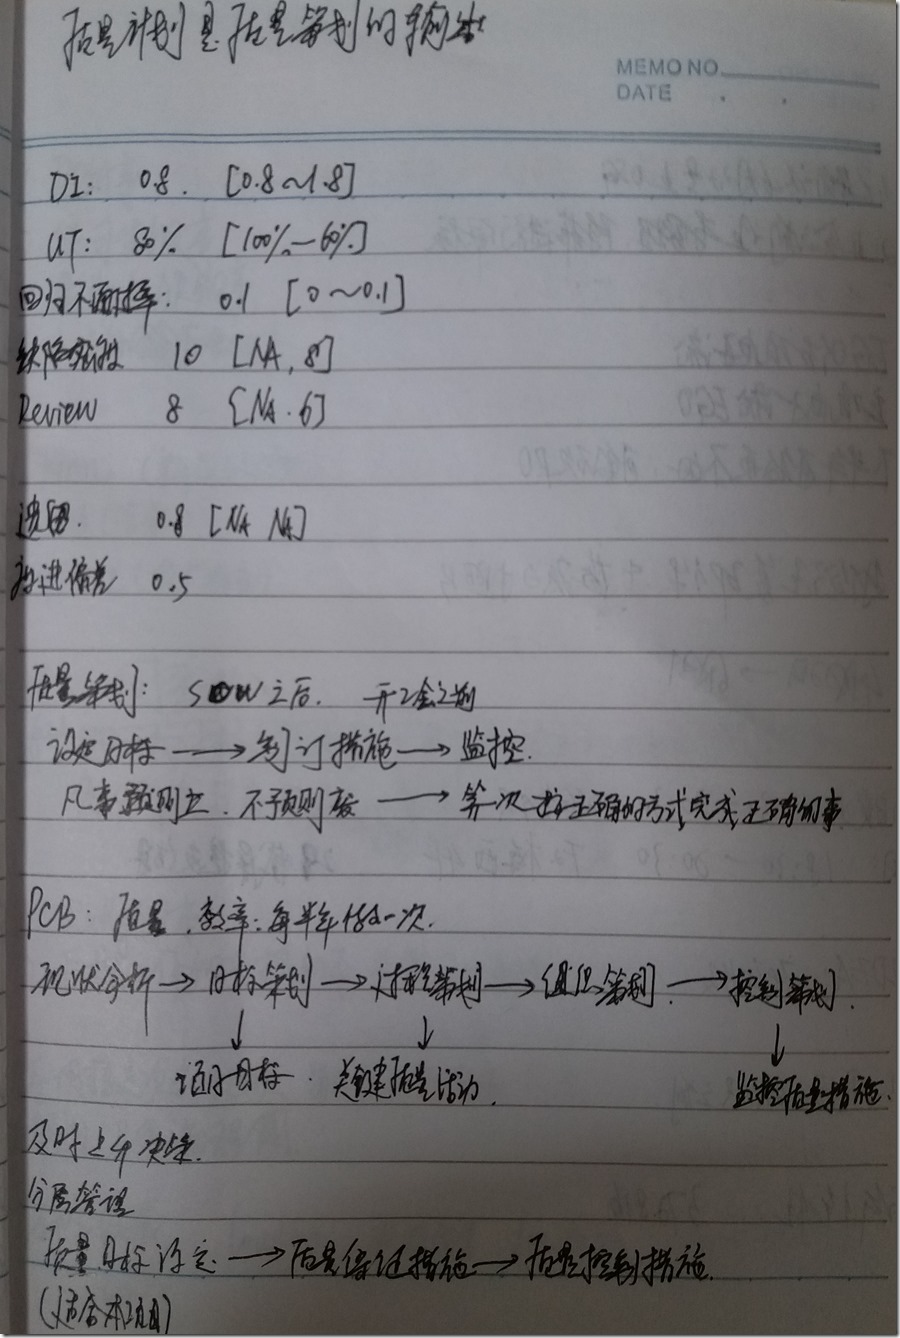 质量计划是质量策划的输出
MEMO NO.
DATE . .
DI: 0.8. [0.8~1.8]
UT: 80% [100%—60%]
回归不通过率: 0.1 [0~0.1]
缺陷密度 10 [NA, 8]
Review 8 [NA. 6]
遗留. 0.8 [NA NA]
偏差 0.5
质量策划: SOW之后. 开工会之前
设定目标 → 制订措施 → 监控.
凡事预则立. 不预则废 → 第一次按正确的方式完成正确的事
PCB: 质量. 效率: 每半年一次.
现状分析 → 目标策划 → 过程策划 → 组织策划. → 控制策划.
↓ ↓ ↓
项目目标. 关键质量活动. 监控质量措施.
及时上升决策.
分层管理
质量目标设定 → 质量保证措施 → 质量控制措施.
(适合本项目)